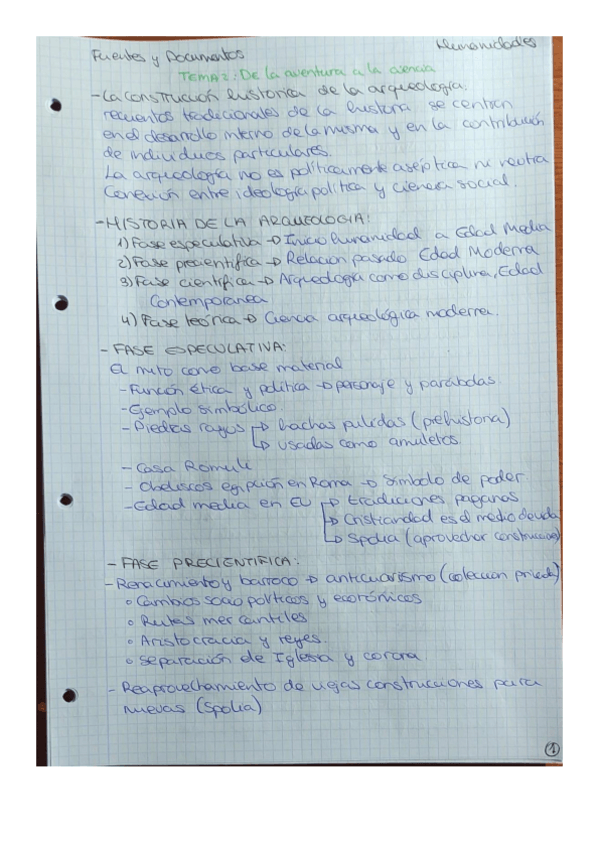 Fuentes y Documentos
Humanidades
TEMA 2: De la aventura a la ciencia
- La construcción historica de la arqueología:
recuentos tradicionales de la historia se centran
en el desarrollo interno de la misma y en la contribución
de individuos particulares.
La arqueología no es políticamente aséptica ni neutra
Conexión entre ideología política y ciencia social.
- HISTORIA DE LA ARQUEOLOGIA:
1) Fase especulativa → Inicio humanidad a Edad Media
2) Fase precientífica → Relacion pasado Edad Moderna
3) Fase cientifica → Arqueología como disciplina, Edad
Contemporanea
4) Fase teórica → Ciencia arqueológica moderna.
- FASE ESPECULATIVA:
El mito como base material
- Función ética y política → personaje y parábolas.
- Ejemplo simbólico.
- Piedras rayos → hachas pulidas (prehistoria)
→ usadas como amuletos.
- Casa Romuli
- Obeliscos egipcios en Roma → Símbolo de poder
- Edad media en EU → tradiciones paganas
→ Cristiandad es el medio
→ Spolia (aprovechar construcciones)
- FASE PRECIENTIFICA:
- Renacimiento y barroco → anticuarismo (colección privada)
o Cambios socio políticos y económicos
o Rutas mercantiles
o Aristocracia y reyes.
o separación de Iglesia y corona
- Reaprovechamiento de viejas construcciones para
nuevas (Spolia)
1